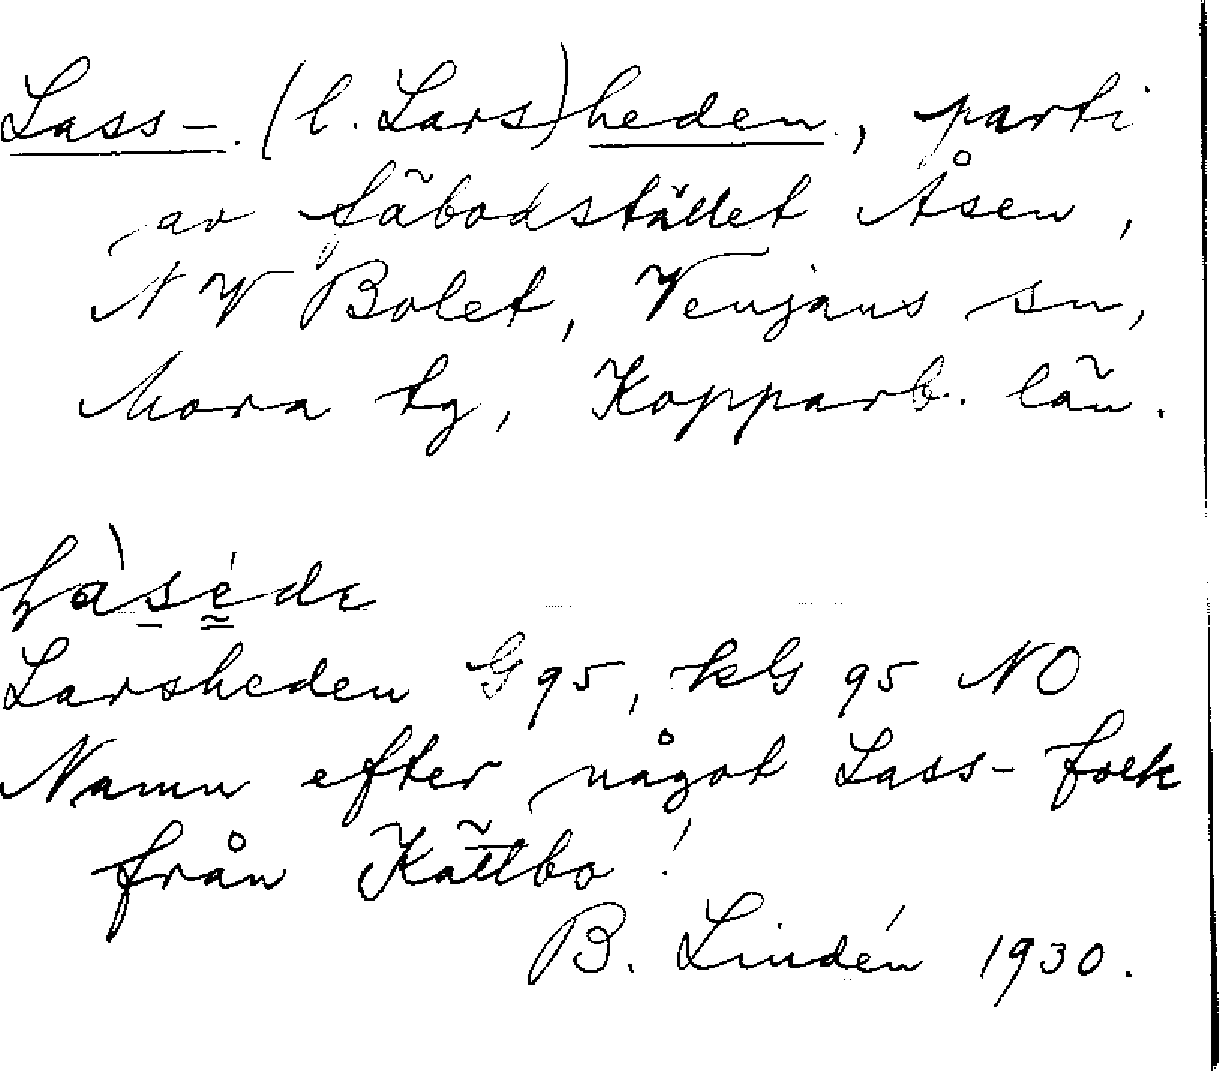 Lass- (l. Lars)heden, parti
av fäbodstället Åsen,
NV Bolet, Venjans sn,
Mora tg, Kopparb. län.
Larsheden G 95, kG 95 NO
Namn efter något Lass-folk
från Kättbo!
B. Lindén 1930.